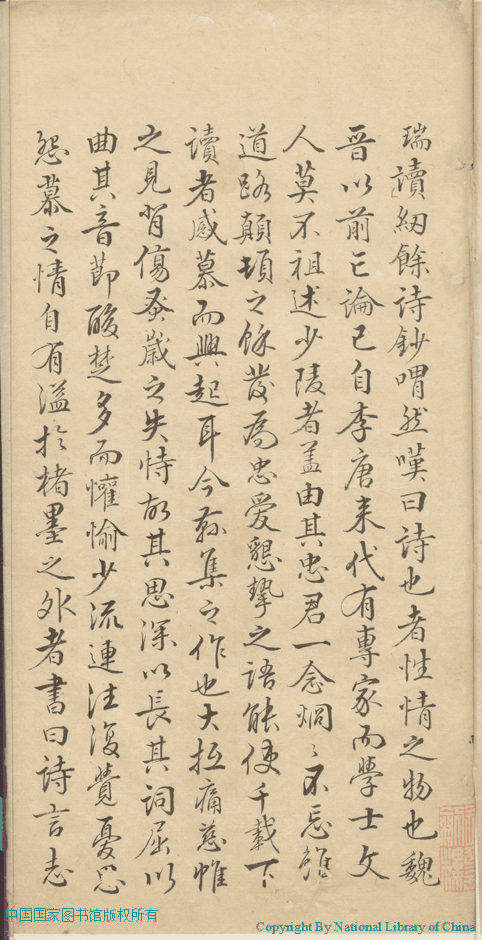 瑞讀紉餘詩鈔喟然嘆曰詩也者性情之物也魏
晋以前亡論已自李唐来代有專家而學士文
人莫不祖述少陵者盖由其忠君一念烱〻不忘雖
道路顛頓之餘發為忠爱懇摯之語能使千載下
讀者感慕而興起耳今茲集之作也大抵痛慈帷
之見背傷蚤歲之失恃故其思深以長其詞屈以
曲其音節酸楚多而懽愉少流連往復覺憂思
怨慕之情自有溢扵楮墨之外者書曰詩言志
中国国家图书馆版权所有
Copyright By National Library of China